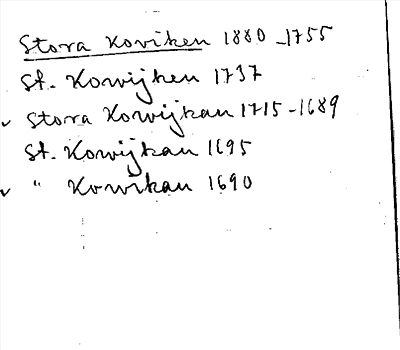 Stora Koviken 1880-1755
St. Korvijken 1737
✓ Stora Korvijkan 1715-1689
St. Korvijkan 1695
✓ " Korvikan 1690